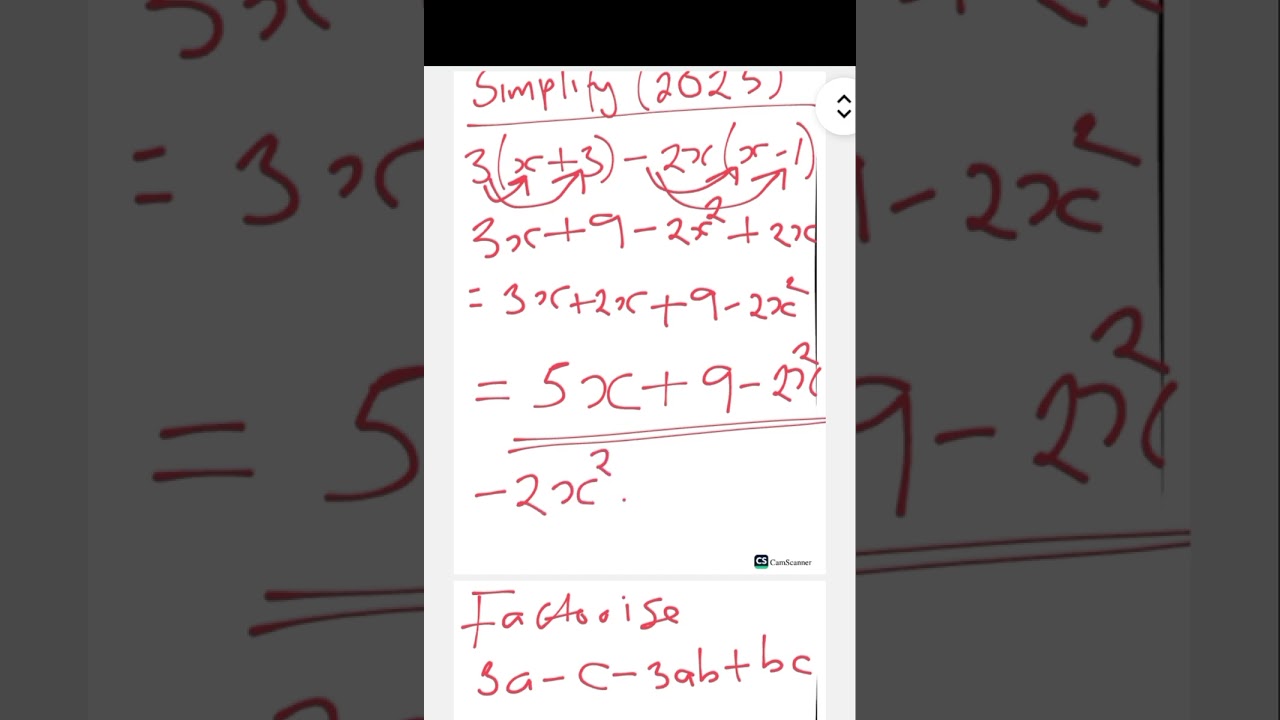 Simplify (2025)
3(x+3) - 2x(x-1)
3x+9-2x²+2x
= 3x+2x+9-2x²
= 5x+9-2x²
-2x².
CS CamScanner
Factorise
3a-c-3ab+bc